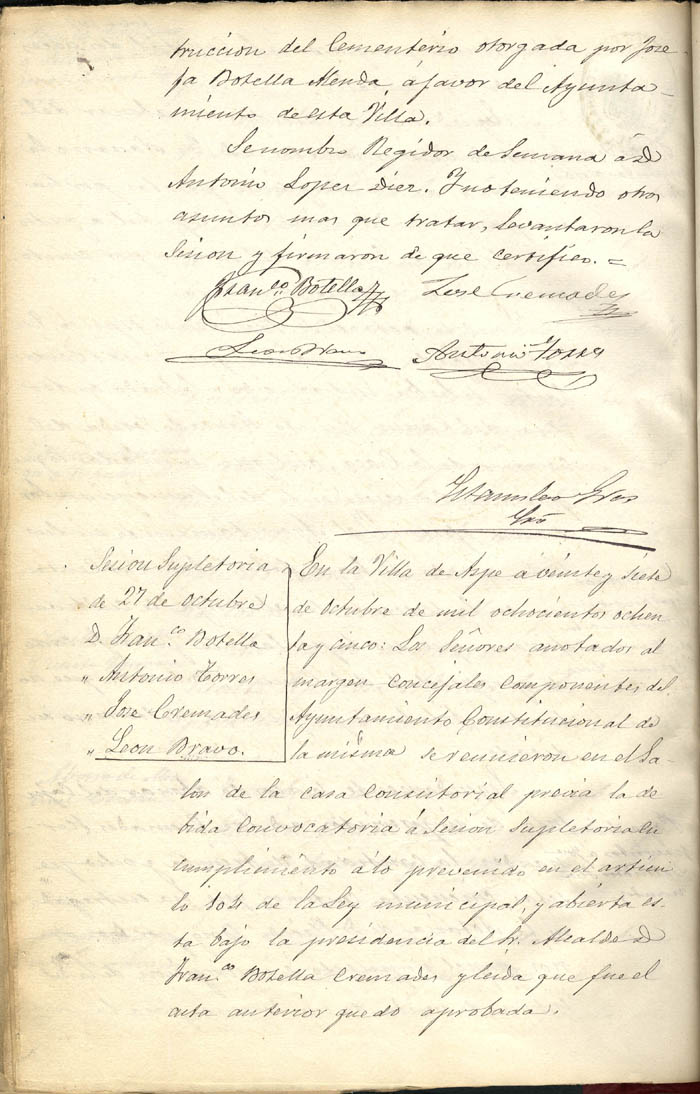 truccion del Cementerio otorgada por Jose
fa Botella Alenda, á favor del Ayunta-
miento de esta Villa.
Se nombro Regidor de Semana á D
Antonio Lopez Diez. Y no teniendo otros
asuntos mas que tratar, levantaron la
Sesion y firmaron de que certifico.=
Franco. Botella
Jose Cremades
Leon Bravo
Antonio Torres
Estanislao Gras
Srio
Sesion Supletoria
de 27 de Octubre
D. Franco. Botella
" Antonio Torres
" Jose Cremades
" Leon Bravo.
En la Villa de Aspe á veinte y siete
de Octubre de mil ochocientos ochen
ta y cinco: Los Señores anotados al
margen concejales componentes del
Ayuntamiento Constitucional de
la misma se reunieron en el Sa-
lon de la casa Consistorial previa la de
bida Convocatoria á Sesion Supletoria en
cumplimiento á lo prevenido en el articu
lo 104 de la Ley municipal, y abierta es
ta bajo la presidencia del Sr. Alcalde D
Franco. Botella Cremades y leida que fue el
acta anterior quedo aprobada.